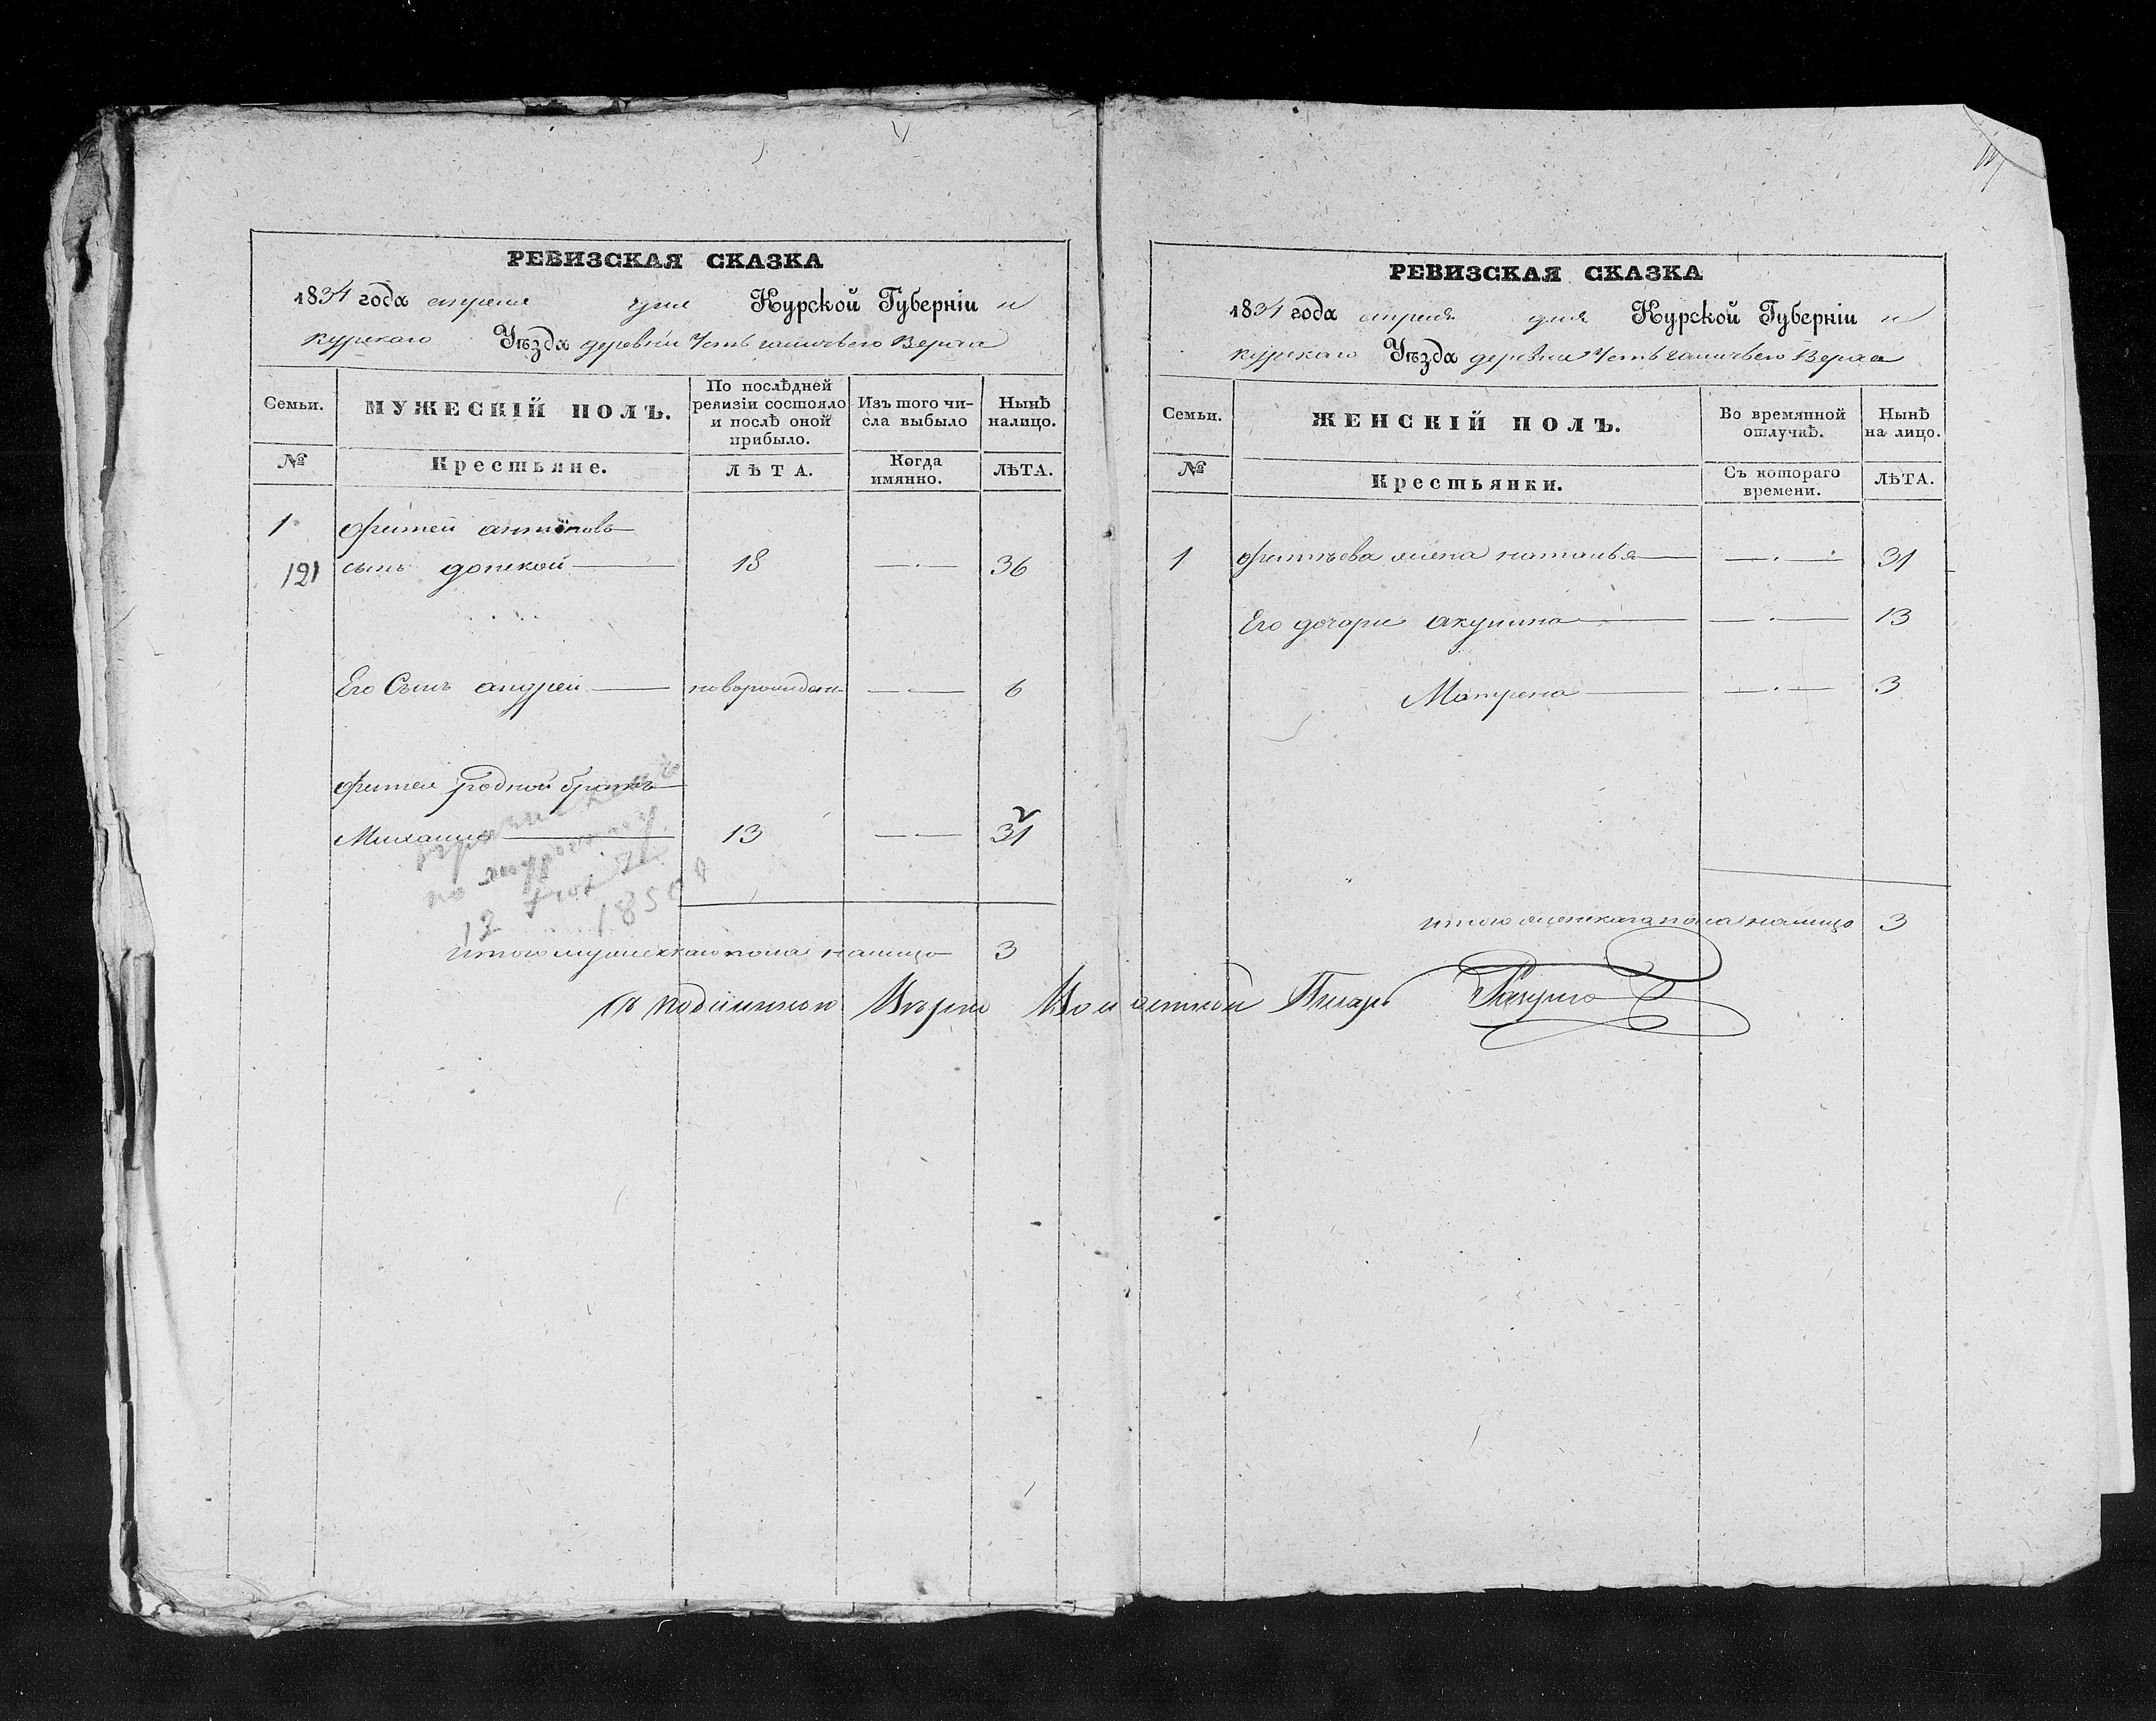 РЕВИЗСКАЯ СКАЗКА
1834 года апреля дня Курской Губерніи и
курскаго Уѣзда деревни Усть ганичьего Верха
Семьи.
МУЖЕСКІЙ ПОЛЪ.
По послѣдней ревизіи состояло и послѣ оной прибыло.
Изъ того числа выбыло
Нынѣ налицо.
№
Крестьяне.
ЛѢТА.
Когда имянно.
ЛѢТА.
1 фатей антиповъ
121 сынъ донской 18 36
Его Сынъ андрей новорожден 6
фатея родной братъ
Михаила 13 31
12 1850
итого мужескаго пола налицо 3
РЕВИЗСКАЯ СКАЗКА
1834 года апреля дня Курской Губерніи и
курскаго Уѣзда деревни Усть ганичьего Верха
Семьи.
ЖЕНСКІЙ ПОЛЪ.
Во времянной отлучкѣ.
Нынѣ на лицо.
№
Крестьянки.
Съ котораго времени.
ЛѢТА.
1 фатѣева жена наталья 31
Его дочери акулина 13
Матрена 3
итого женскаго пола налицо 3
Съ подлиннымъ Верно Волостной Писарь